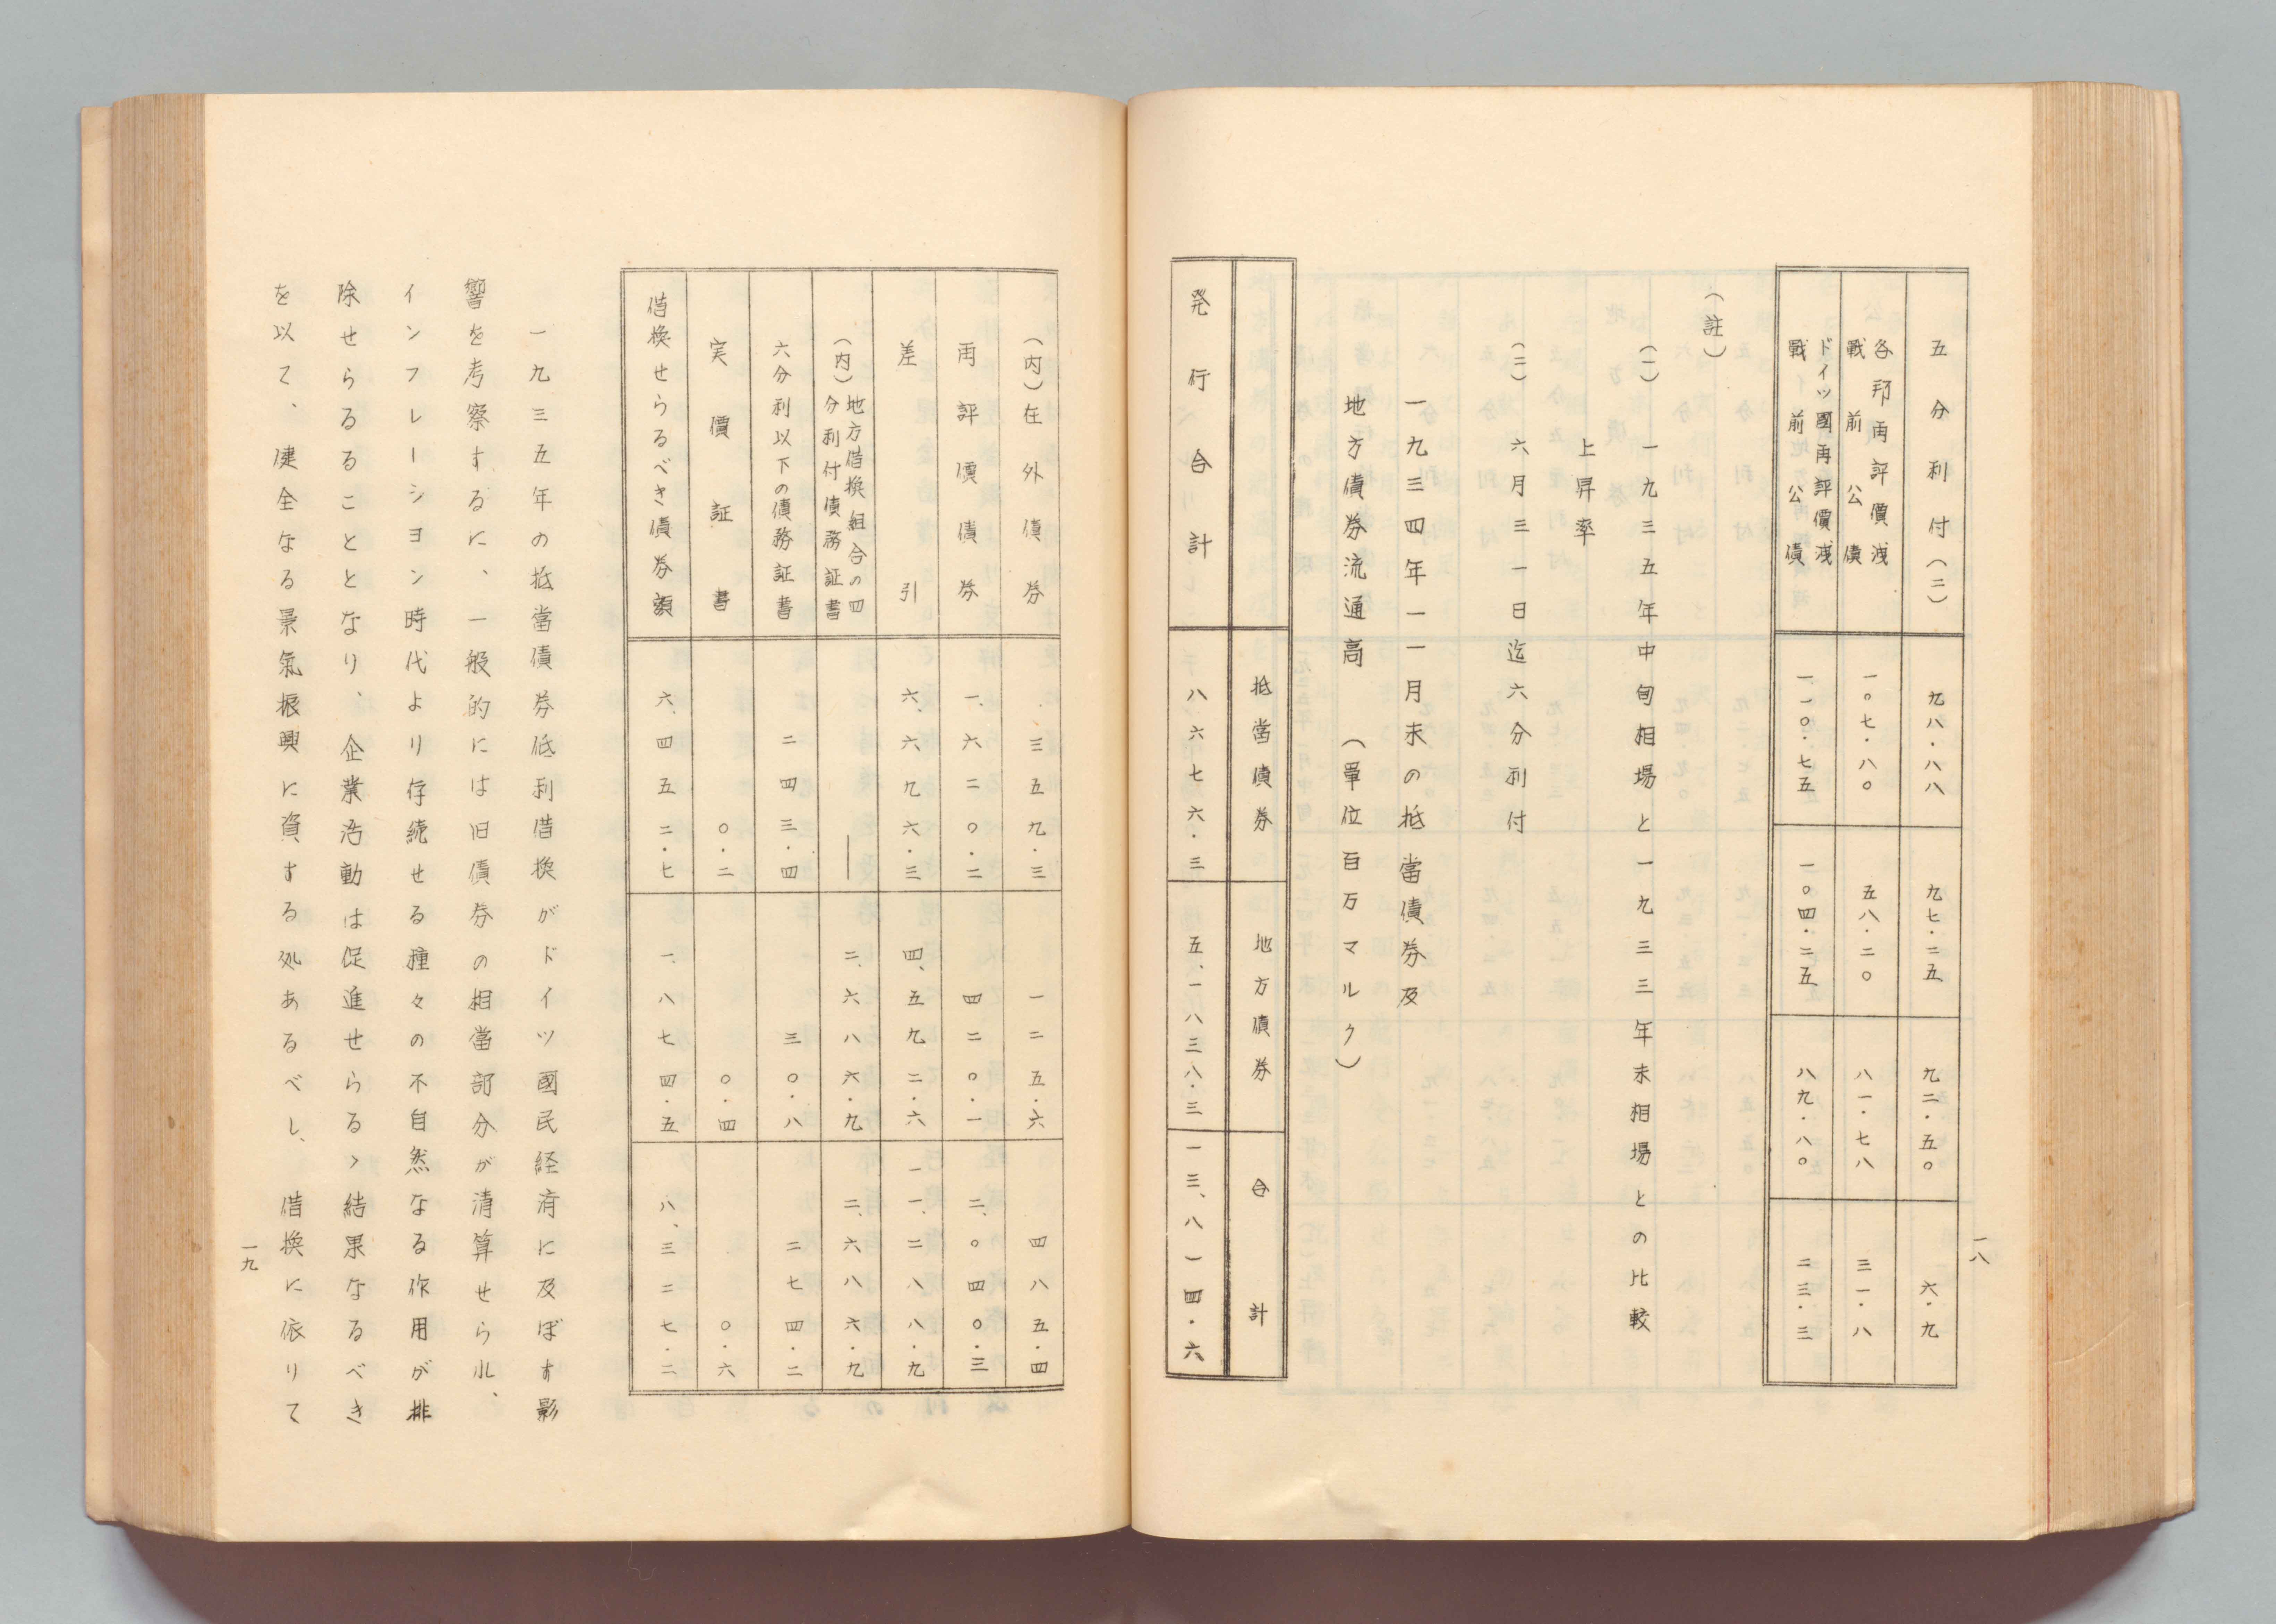 五分利付(二) 九八・八八 九七・二五 九二・五〇 六・九
各邦再評價濟戰前公債 一〇七・八〇 五八・二〇 八一・七八 三一・八
ドイツ國再評價濟戰前公債 一一〇・七五 一〇四・二五 八九・八〇 二三・三
(註)
(一) 一九三五年中旬相場と一九三三年末相場との比較
上昇率
(二) 六月三一日迄六分利付
一九三四年一一月末の抵當債券及
地方債券流通高 (單位百万マルク)
抵當債券 地方債券 合計
発行合計 八六七六・三 五、一八三八・三 一三、八一四・六
一八
(内)在外債券 三五九・三 一二五・六 四八五・四
再評價債券 一、六二〇・二 四二〇・一 二、〇四〇・三
差引 六、六九六・三 四、五九二・六 一一、二八八・九
(内)地方借換組合の四分利付債務証書 ― 二、六八六・九 二、六八六・九
六分利以下の債務証書 二四三・四 三〇・八 二七四・二
実價証書 〇・二 〇・四 〇・六
借換せらるべき債券額 六、四五二・七 一、八七四・五 八、三二七・二
一九三五年の抵當債券低利借換がドイツ國民経済に及ぼす影
響を考察するに、一般的には旧債券の相當部分が清算せられ、
インフレーション時代より存続せる種々の不自然なる作用が排
除せらるることとなり、企業活動は促進せらるゝ結果なるべき
を以て、健全なる景氣振興に資する処あるべし、借換に依りて
一九